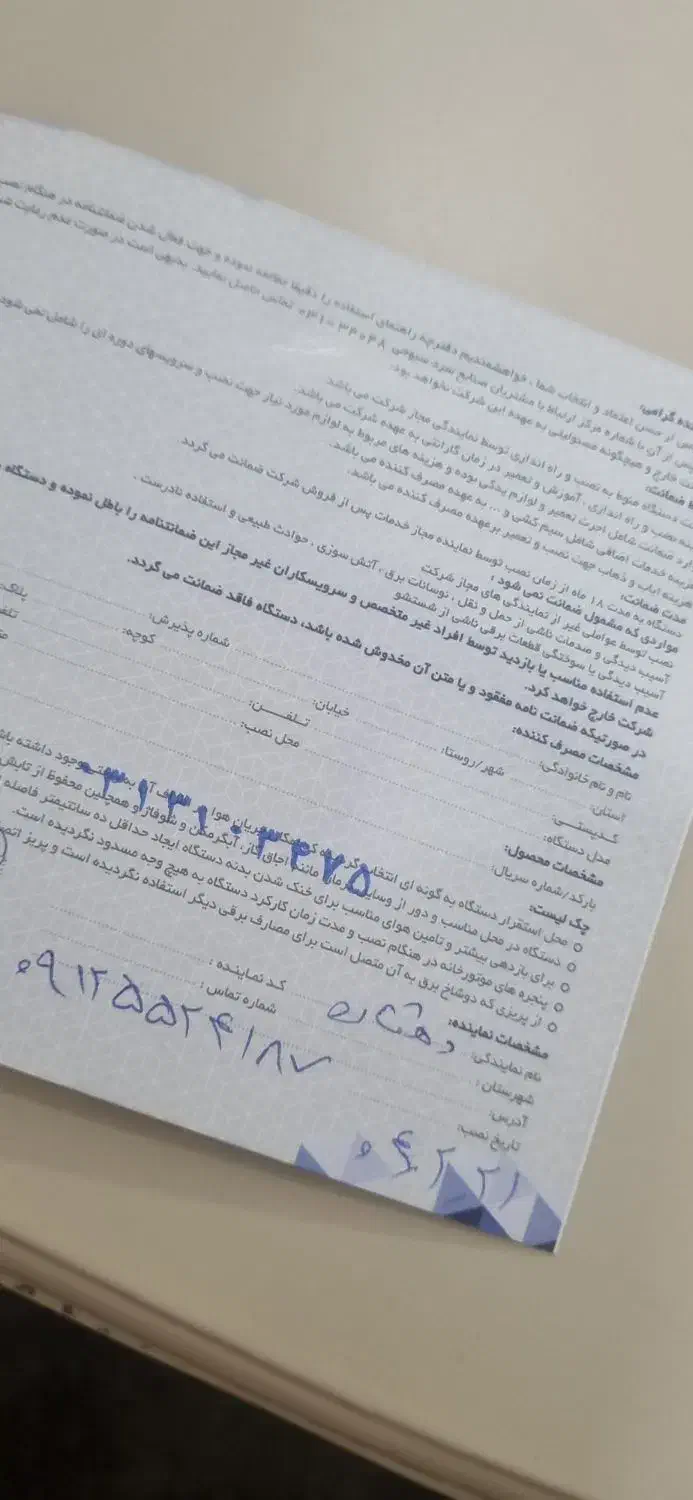 نده گرامی:
س از حسن اعتماد و انتخاب شما ، خواهشمندیم دفترچه راهنمای استفاده را دقیقا مطالعه نموده و جهت فعال شدن ضمانتنامه در هنگام نصب
س از آن با شماره مرکز ارتباط با مشتریان صنایع سرد تماس حاصل نمایید. بدیهی است در صورت عدم رعایت
خارج و هیچگونه مسئولیتی به عهده این شرکت نخواهد بود.
ضمانت:
دستگاه منوط به نصب و راه اندازی توسط نمایندگی مجاز شرکت می باشد.
نصب و راه اندازی ، آموزش و تعمیر در زمان گارانتی به عهده شرکت می باشد.
ضمانت شامل اجرت تعمیر و لوازم یدکی بوده و هزینه های مربوط به لوازم مورد نیاز جهت نصب و سرویسهای دوره ای را شامل نمی شود
هزینه خدمات اضافی شامل سیم کشی و ... به عهده مصرف کننده می باشد.
هزینه ایاب و ذهاب جهت نصب و تعمیر برعهده مصرف کننده می باشد.
مدت ضمانت:
دستگاه به مدت ۱۸ ماه از زمان نصب توسط نماینده مجاز خدمات پس از فروش شرکت ضمانت می گردد
مواردی که مشمول ضمانت نمی شود :
نصب توسط عواملی غیر از نمایندگی های مجاز شرکت
آسیب دیدگی و صدمات ناشی از حمل و نقل ، نوسانات برق ، آتش سوزی ، حوادث طبیعی و استفاده نادرست .
آسیب دیدگی یا سوختگی قطعات برقی ناشی از شستشو
عدم استفاده مناسب یا بازدید توسط افراد غیر متخصص و سرویسکاران غیر مجاز این ضمانتنامه را باطل نموده و دستگاه
شرکت خارج خواهد کرد.
در صورتیکه ضمانت نامه مفقود و یا متن آن مخدوش شده باشد، دستگاه فاقد ضمانت می گردد.
مشخصات مصرف کننده:
نام و نام خانوادگی: شماره پذیرش:
استان: شهر/روستا: خیابان: کوچه: پلاک:
کدپستی: تلفن:
محل دستگاه: محل نصب:
مشخصات محصول:
بارکد/شماره سریال:
۰۳۱۳۱۰۳۴۷۵
چک لیست:
محل استقرار دستگاه به گونه ای انتخاب
دستگاه در محل مناسب و دور از وسایل مانند اجاق گاز، آبگرمکن و شوفاژ و همچنین محفوظ از تابش
برای بازدهی بیشتر و تامین هوای مناسب برای خنک شدن بدنه دستگاه ایجاد حداقل ده سانتیمتر فاصله
پنجره های موتورخانه در هنگام نصب و مدت زمان کارکرد دستگاه به هیچ وجه مسدود نگردیده است.
از پریزی که دوشاخ برق به آن متصل است برای مصارف برقی دیگر استفاده نگردیده است و پریز
مشخصات نماینده:
نام نمایندگی: کد نماینده :
شهرستان : شماره تماس :
۰۹۱۲۵۵۲۴۱۸۷
آدرس:
تاریخ نصب: